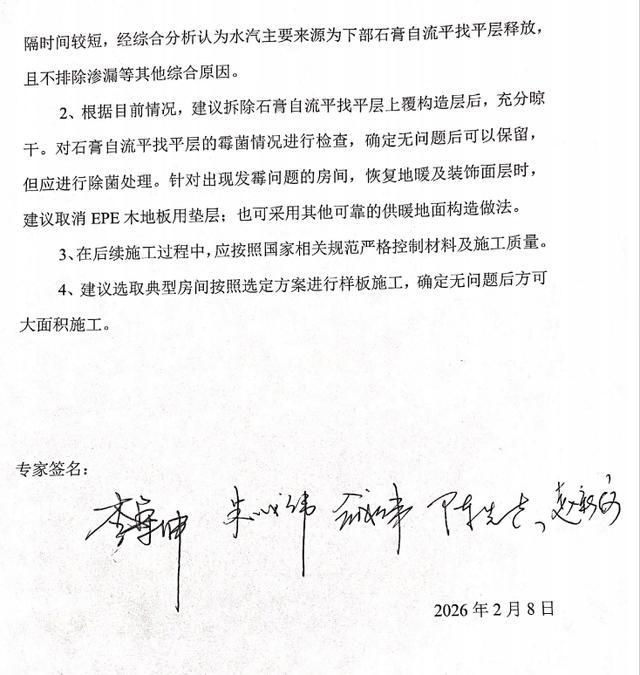 隔时间较短，经综合分析认为水汽主要来源为下部石膏自流平找平层释放，
且不排除渗漏等其他综合原因。
2、根据目前情况，建议拆除石膏自流平找平层上覆构造层后，充分晾
干。对石膏自流平找平层的霉菌情况进行检查，确定无问题后可以保留，
但应进行除菌处理。针对出现发霉问题的房间，恢复地暖及装饰面层时，
建议取消 EPE 木地板用垫层；也可采用其他可靠的供暖地面构造做法。
3、在后续施工过程中，应按照国家相关规范严格控制材料及施工质量。
4、建议选取典型房间按照选定方案进行样板施工，确定无问题后方可
大面积施工。
专家签名：
2026 年 2 月 8 日